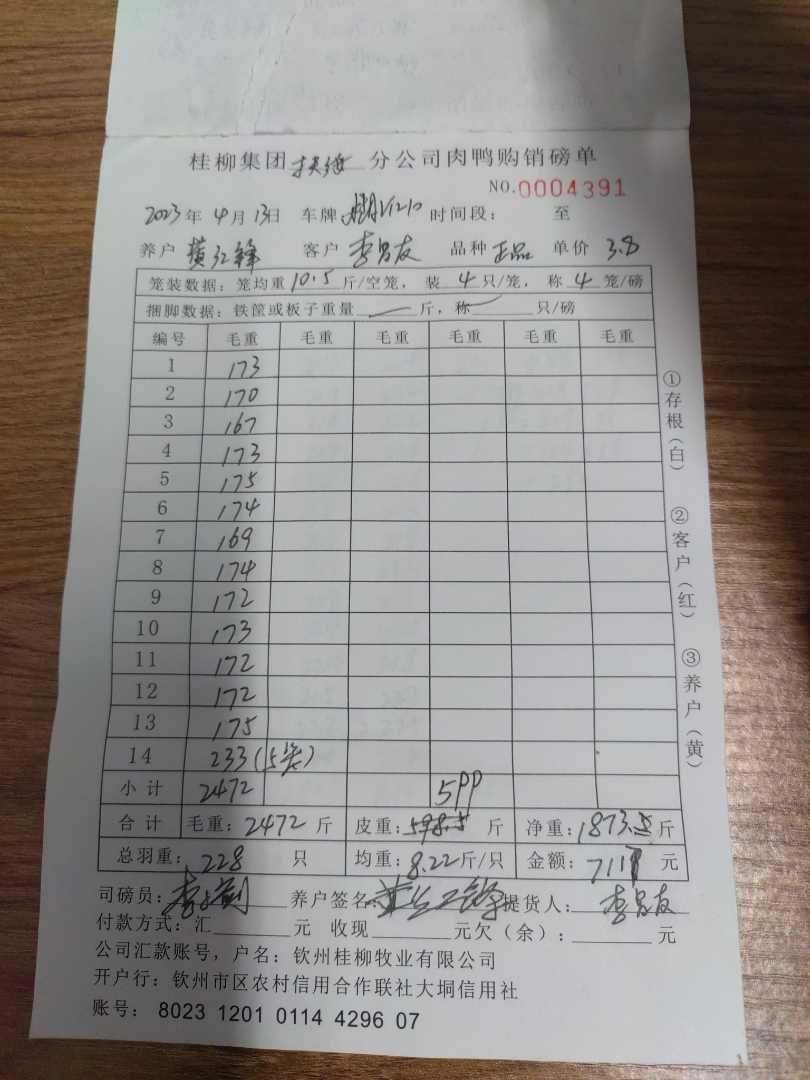 桂柳集团扶绥分公司肉鸭购销磅单
NO.0004391
2023年4月13日 车牌 时间段： 至
养户 黄红锋 客户 李昌友 品种 正品 单价 3.8
笼装数据：笼均重10.5斤/空笼，装4只/笼，称4笼/磅
捆脚数据：铁筐或板子重量 斤，称 只/磅
编号 毛重 毛重 毛重 毛重 毛重 毛重
1 173
2 170
3 167
4 173
5 175
6 174
7 169
8 174
9 172
10 173
11 172
12 172
13 175
14 233(5笼)
小计 2472
合计 毛重：2472斤 皮重：598.5斤 净重：1873.5斤
总羽重：228只 均重：8.22斤/只 金额：7119元
司磅员： 养户签名： 提货人：李昌友
付款方式：汇 元 收现 元欠（余）： 元
公司汇款账号，户名：钦州桂柳牧业有限公司
开户行：钦州市区农村信用合作联社大垌信用社
账号：8023 1201 0114 4296 07
①存根（白）
②客户（红）
③养户（黄）